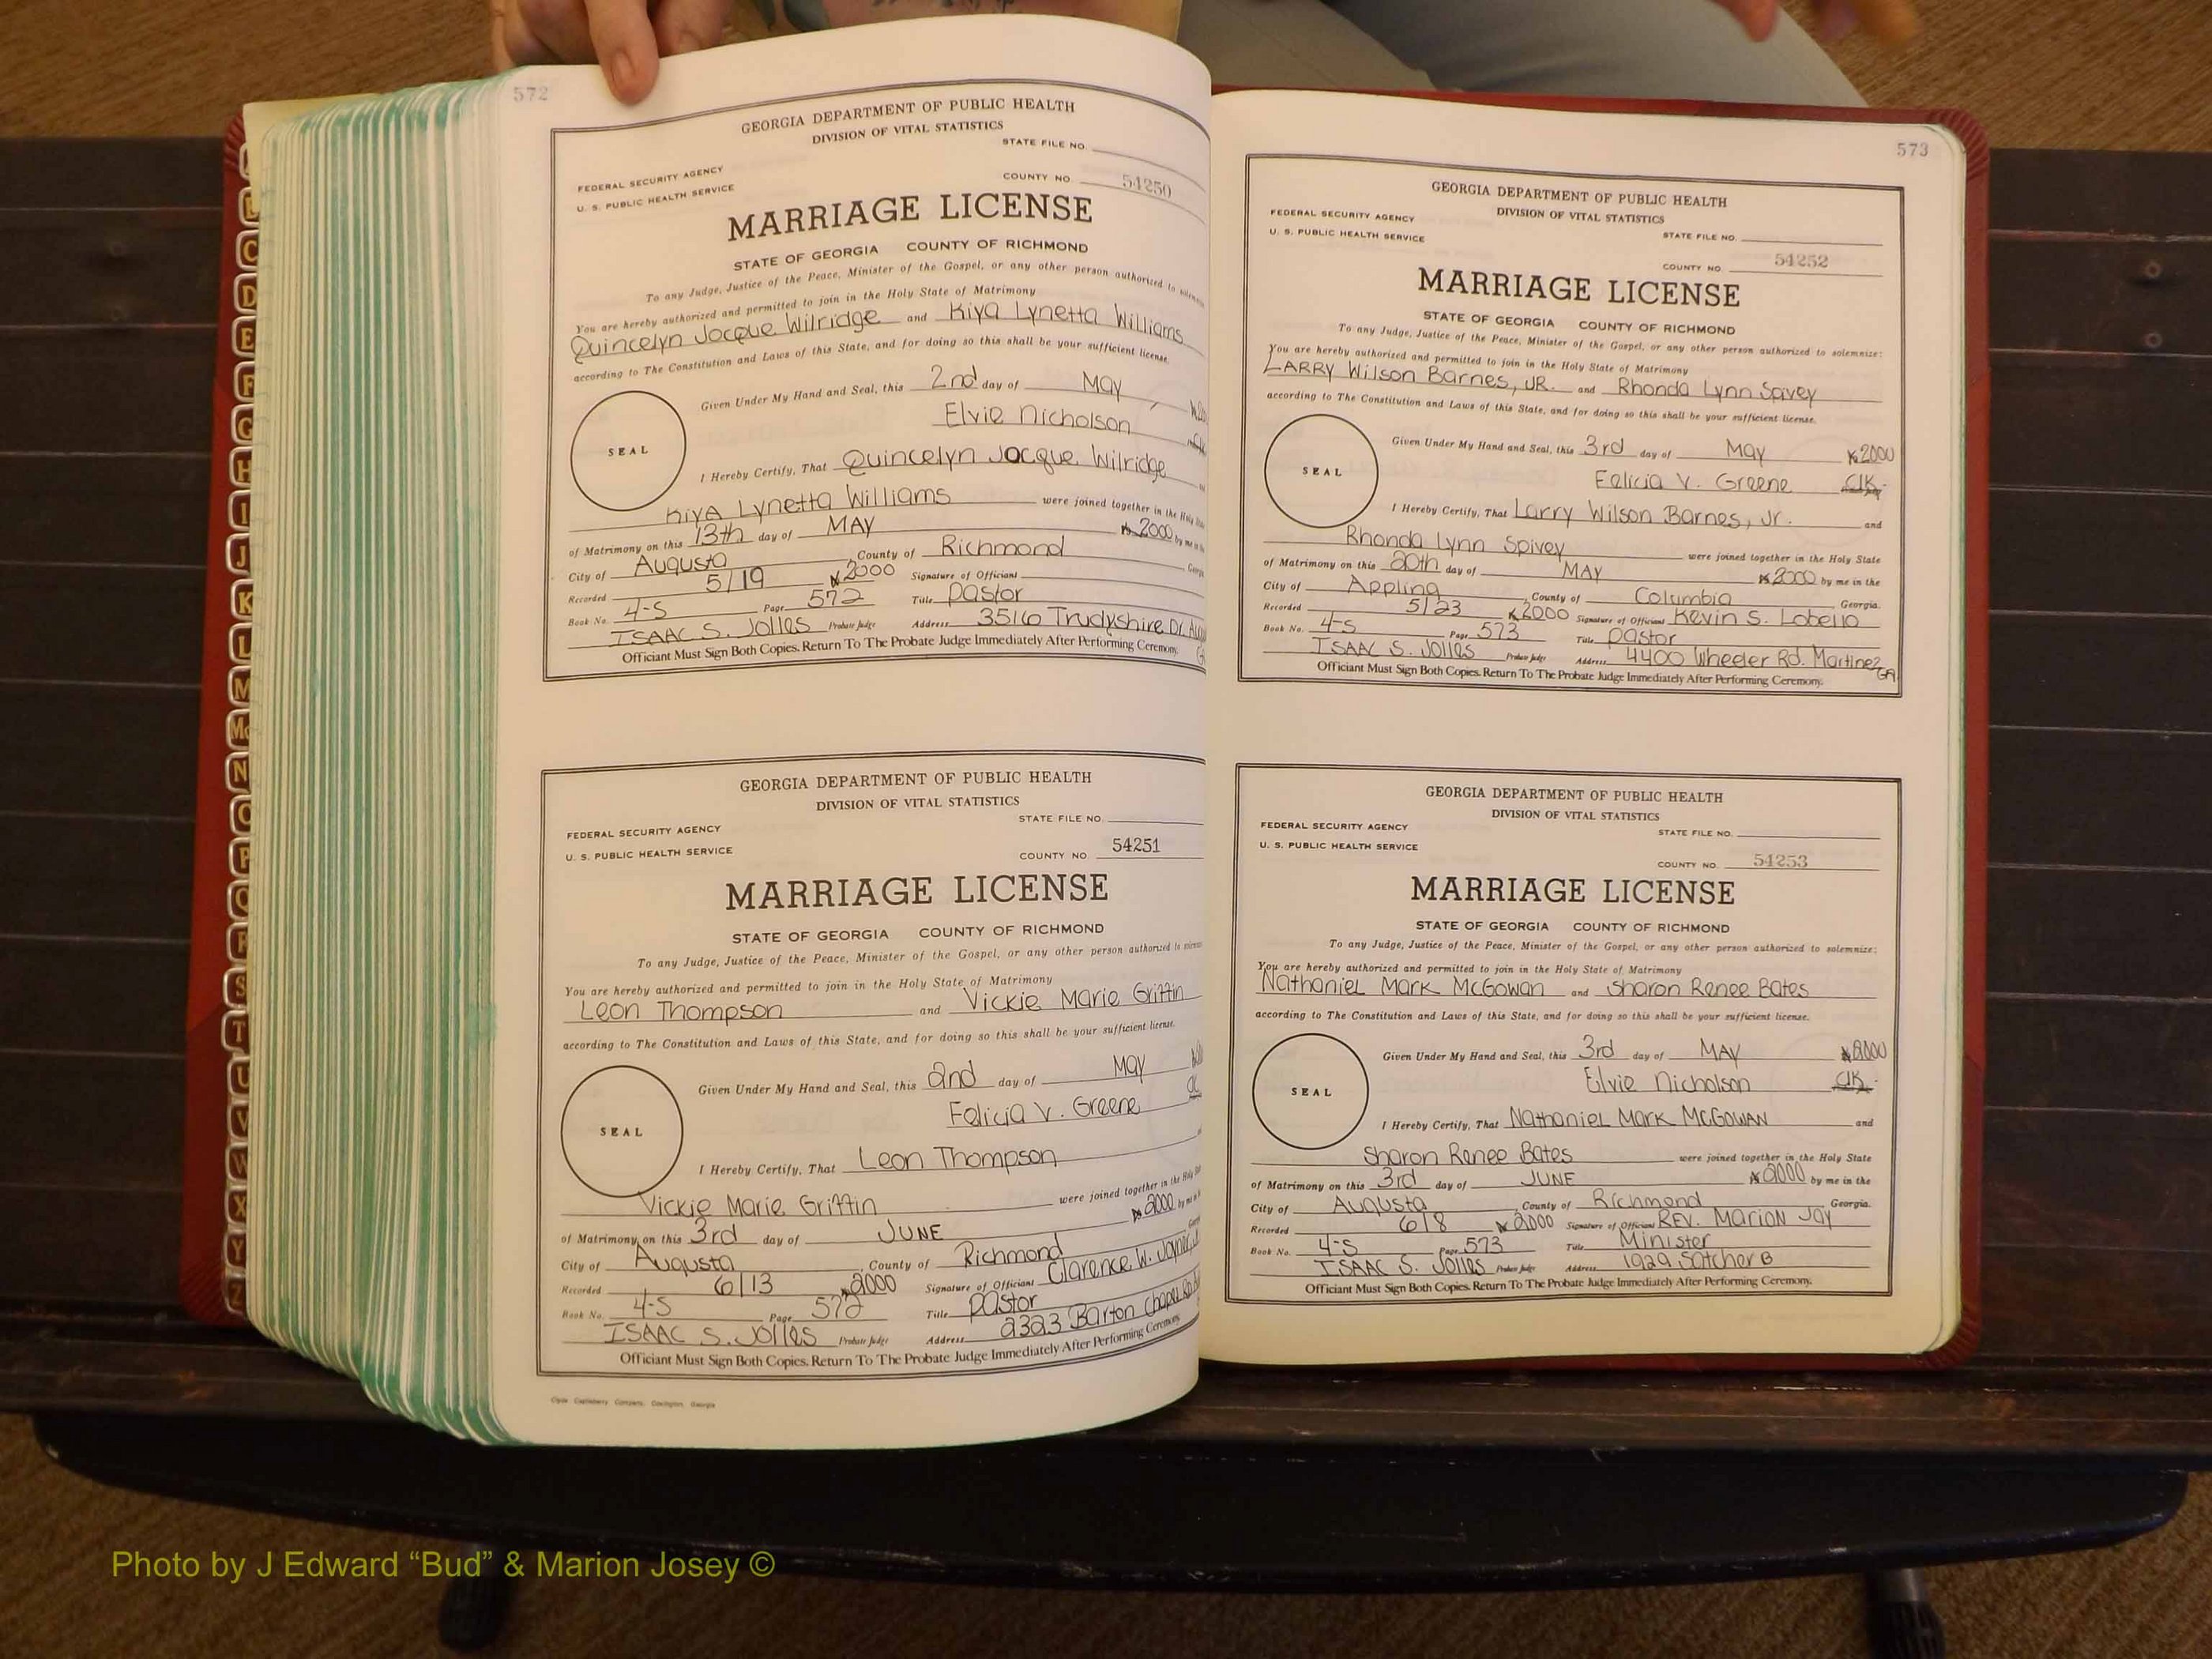 572
GEORGIA DEPARTMENT OF PUBLIC HEALTH
DIVISION OF VITAL STATISTICS
STATE FILE NO.
FEDERAL SECURITY AGENCY
U. S. PUBLIC HEALTH SERVICE
COUNTY NO. 54250
MARRIAGE LICENSE
STATE OF GEORGIA COUNTY OF RICHMOND
To any Judge, Justice of the Peace, Minister of the Gospel, or any other person authorized to
You are hereby authorized and permitted to join in the Holy State of Matrimony
Quincelyn Jacque Wilridge and Kiya Lynetta Williams
according to The Constitution and Laws of this State, and for doing so this shall be your sufficient license.
Given Under My Hand and Seal, this 2nd day of May
Elvie Nicholson
SEAL
I Hereby Certify, That Quincelyn Jacque Wilridge
Kiya Lynetta Williams were joined together in the Holy
of Matrimony on this 13th day of MAY 2000 by me in
City of Augusta, County of Richmond
Recorded 5/19 2000 Signature of Officiant
Book No. 4-S Page 572 Title Pastor
ISAAC S. Jolles Probate Judge Address 3516 Trudyshire Dr.
Officiant Must Sign Both Copies. Return To The Probate Judge Immediately After Performing Ceremony.
GEORGIA DEPARTMENT OF PUBLIC HEALTH
DIVISION OF VITAL STATISTICS
STATE FILE NO.
FEDERAL SECURITY AGENCY
U. S. PUBLIC HEALTH SERVICE
COUNTY NO. 54251
MARRIAGE LICENSE
STATE OF GEORGIA COUNTY OF RICHMOND
To any Judge, Justice of the Peace, Minister of the Gospel, or any other person authorized to
You are hereby authorized and permitted to join in the Holy State of Matrimony
Leon Thompson and Vickie Marie Griffin
according to The Constitution and Laws of this State, and for doing so this shall be your sufficient license.
Given Under My Hand and Seal, this 2nd day of May
Felicia V. Greene
SEAL
I Hereby Certify, That Leon Thompson
Vickie Marie Griffin were joined together in the Holy
of Matrimony on this 3rd day of JUNE 2000 by me in
City of Augusta, County of Richmond
Recorded 6/13 2000 Signature of Officiant Clarence W. Joyner
Book No. 4-S Page 572 Title Pastor
ISAAC S. Jolles Probate Judge Address 2323 Barton Chapel Rd
Officiant Must Sign Both Copies. Return To The Probate Judge Immediately After Performing Ceremony.
573
GEORGIA DEPARTMENT OF PUBLIC HEALTH
DIVISION OF VITAL STATISTICS
FEDERAL SECURITY AGENCY
U. S. PUBLIC HEALTH SERVICE
STATE FILE NO.
COUNTY NO. 54252
MARRIAGE LICENSE
STATE OF GEORGIA COUNTY OF RICHMOND
To any Judge, Justice of the Peace, Minister of the Gospel, or any other person authorized to solemnize:
You are hereby authorized and permitted to join in the Holy State of Matrimony
LARRY Wilson Barnes, JR. and Rhonda Lynn Spivey
according to The Constitution and Laws of this State, and for doing so this shall be your sufficient license.
Given Under My Hand and Seal, this 3rd day of May 2000
Felicia V. Greene Clk.
SEAL
I Hereby Certify, That Larry Wilson Barnes, Jr. and
Rhonda Lynn Spivey were joined together in the Holy State
of Matrimony on this 20th day of MAY 2000 by me in the
City of Appling, County of Columbia Georgia.
Recorded 5/23 2000 Signature of Officiant Kevin S. Lobello
Book No. 4-S Page 573 Title Pastor
ISAAC S. Jolles Probate Judge Address 4400 Wheeler Rd. Martinez GA
Officiant Must Sign Both Copies. Return To The Probate Judge Immediately After Performing Ceremony.
GEORGIA DEPARTMENT OF PUBLIC HEALTH
DIVISION OF VITAL STATISTICS
FEDERAL SECURITY AGENCY
STATE FILE NO.
U. S. PUBLIC HEALTH SERVICE
COUNTY NO. 54253
MARRIAGE LICENSE
STATE OF GEORGIA COUNTY OF RICHMOND
To any Judge, Justice of the Peace, Minister of the Gospel, or any other person authorized to solemnize:
You are hereby authorized and permitted to join in the Holy State of Matrimony
Nathaniel Mark McGowan and Sharon Renee Bates
according to The Constitution and Laws of this State, and for doing so this shall be your sufficient license.
Given Under My Hand and Seal, this 3rd day of MAY 2000
Elvie Nicholson Clk.
SEAL
I Hereby Certify, That Nathaniel Mark McGOWAN and
Sharon Renee Bates were joined together in the Holy State
of Matrimony on this 3rd day of JUNE 2000 by me in the
City of Augusta, County of Richmond Georgia.
Recorded 6/8 2000 Signature of Officiant REV. Marion Jay
Book No. 4-S Page 573 Title Minister
ISAAC S. Jolles Probate Judge Address 1929 Satcher B
Officiant Must Sign Both Copies. Return To The Probate Judge Immediately After Performing Ceremony.
C
D
E
F
G
H
I
J
K
L
M
Mc
N
O
P
Q
R
S
T
U
V
W
X
Y
Z
Photo by J Edward “Bud” & Marion Josey ©